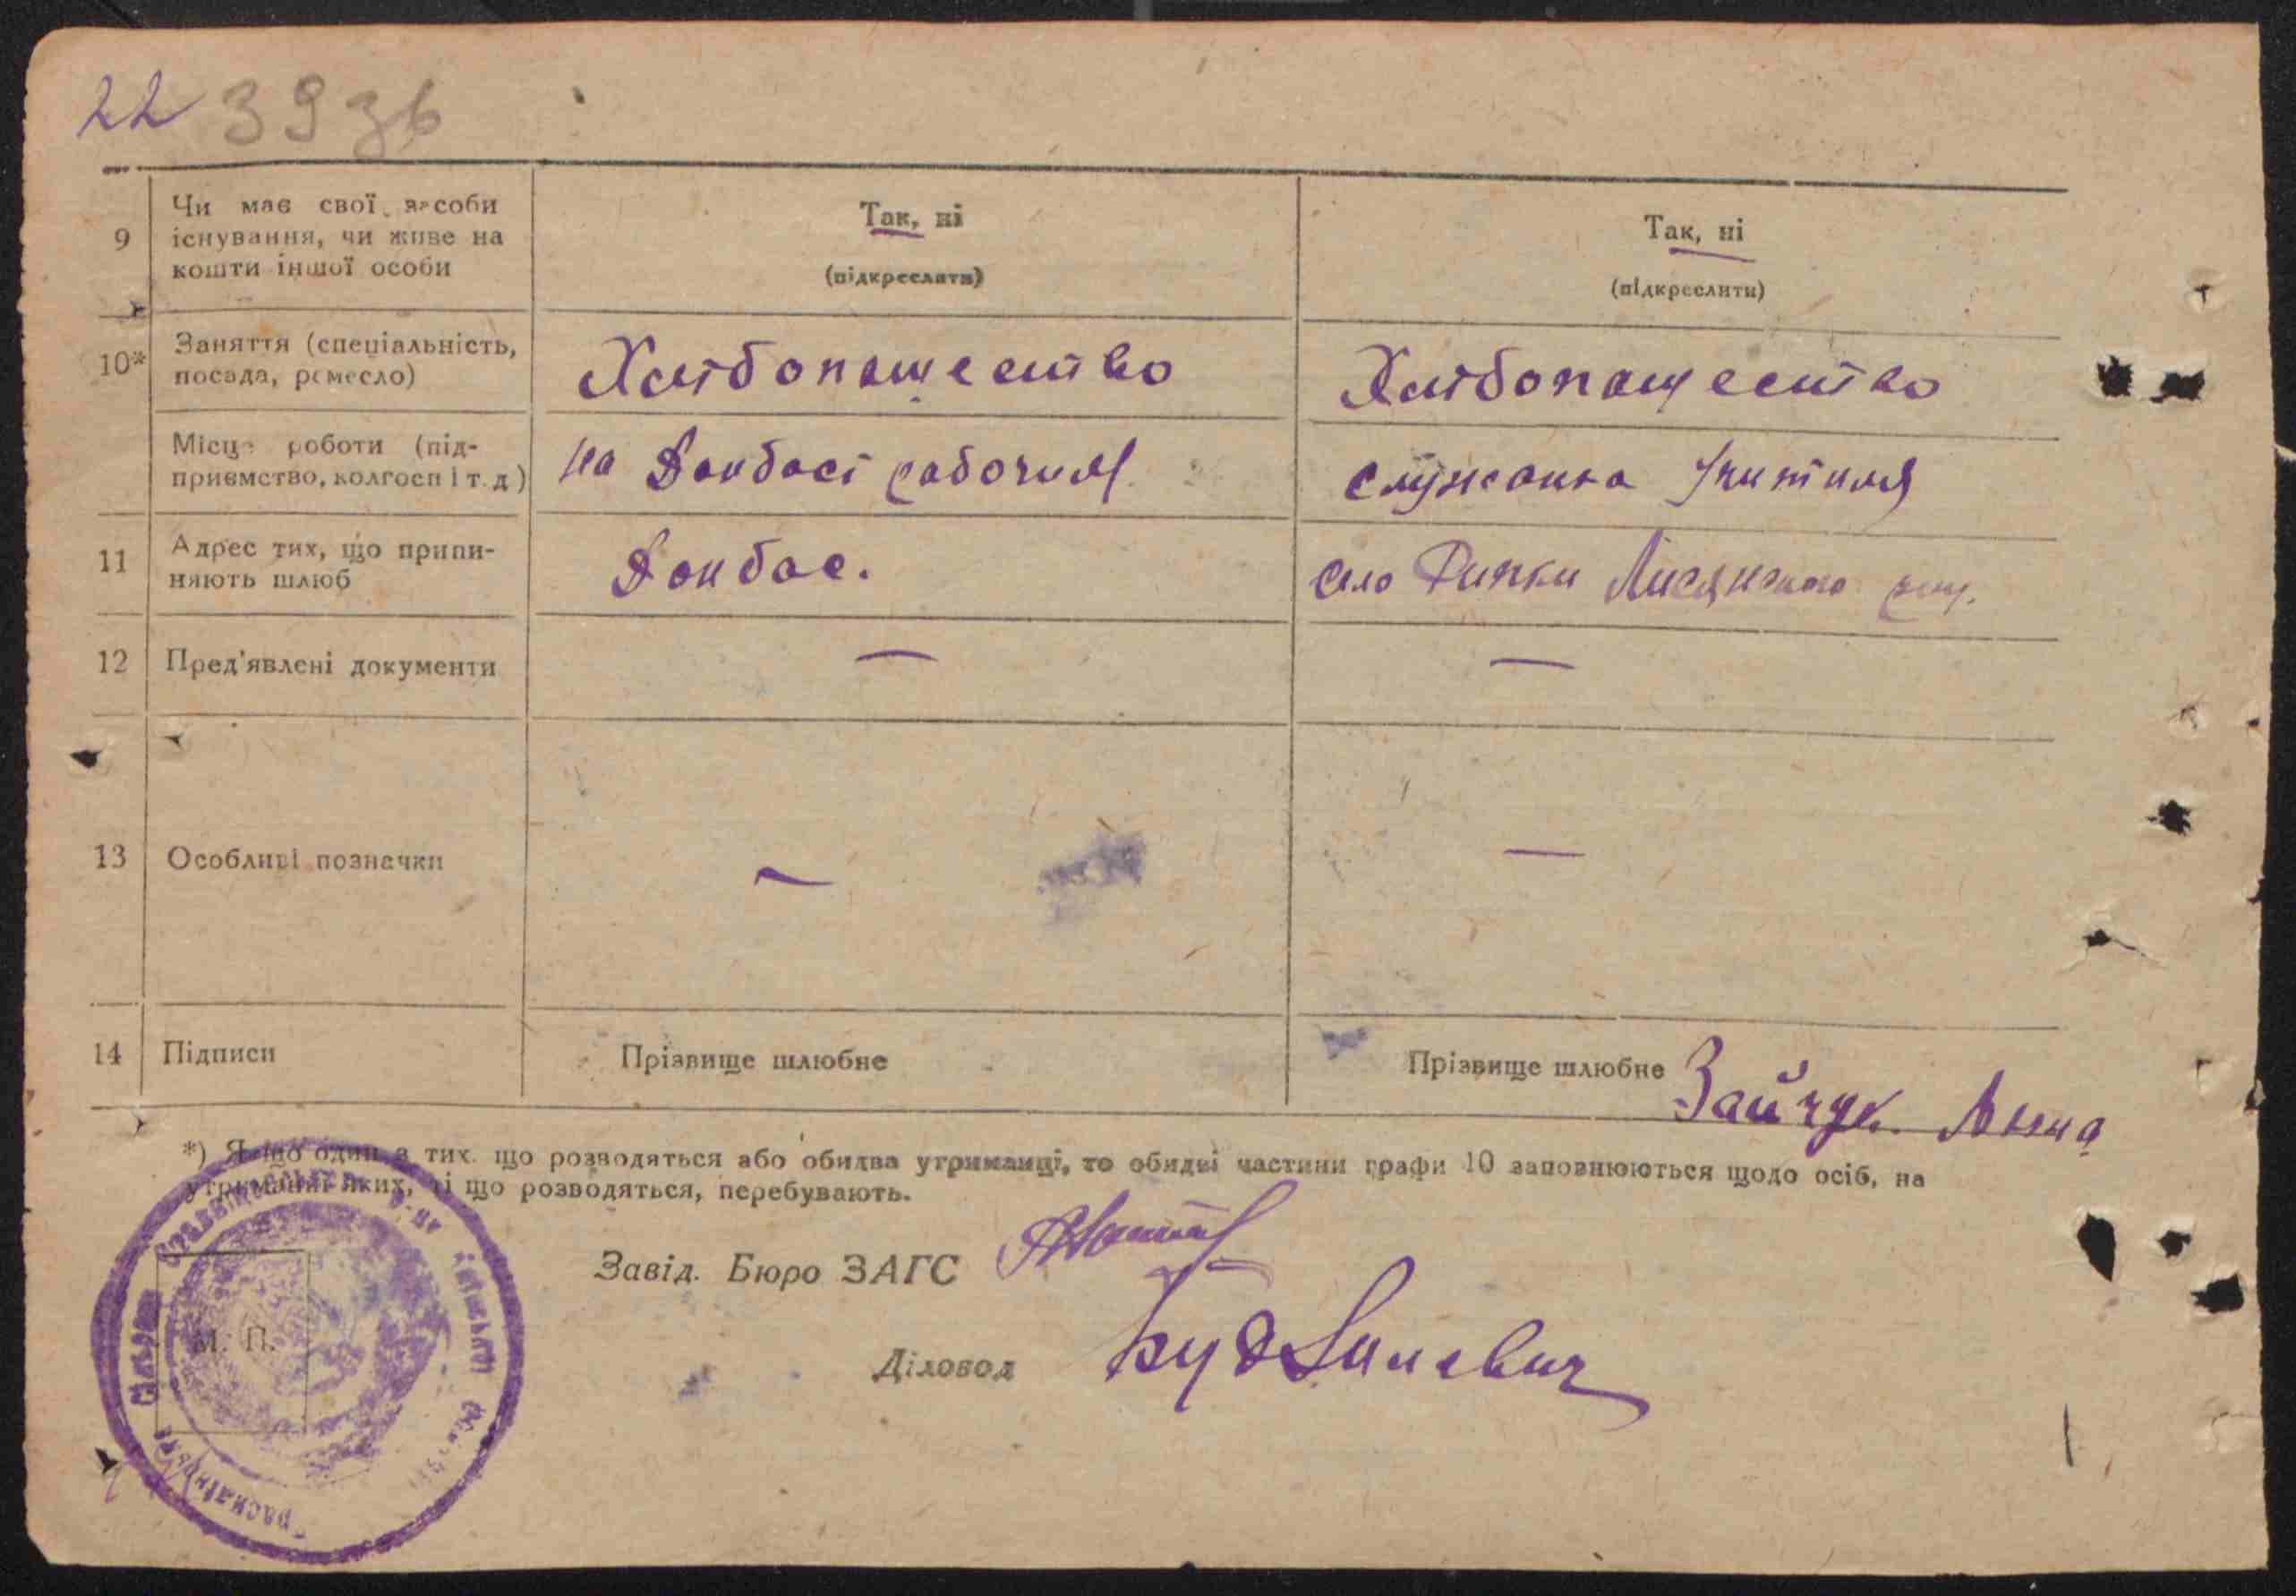 22 39 зв
9 Чи має свої засоби існування, чи живе на кошти іншої особи
Так, ні
(підкреслити)
Так, ні
(підкреслити)
10* Заняття (спеціальність, посада, ремесло)
Хлібопашество
Хлібопашество
Місце роботи (підприємство, колгосп і т. д)
на Донбасі рабочим
служанка Учитиля
11 Адрес тих, що припиняють шлюб
Донбас.
село Лисянського
12 Пред'явлені документи
—
—
13 Особливі позначки
—
—
14 Підписи
Прізвище шлюбне
Прізвище шлюбне Зайчук Анна
*) Якщо один з тих що розводяться або обидва утриманці, то обидві частини графи 10 заповнюються щодо осіб, на
утриманні яких, ті що розводяться, перебувають.
Завід. Бюро ЗАГС
М. П.
Діловод